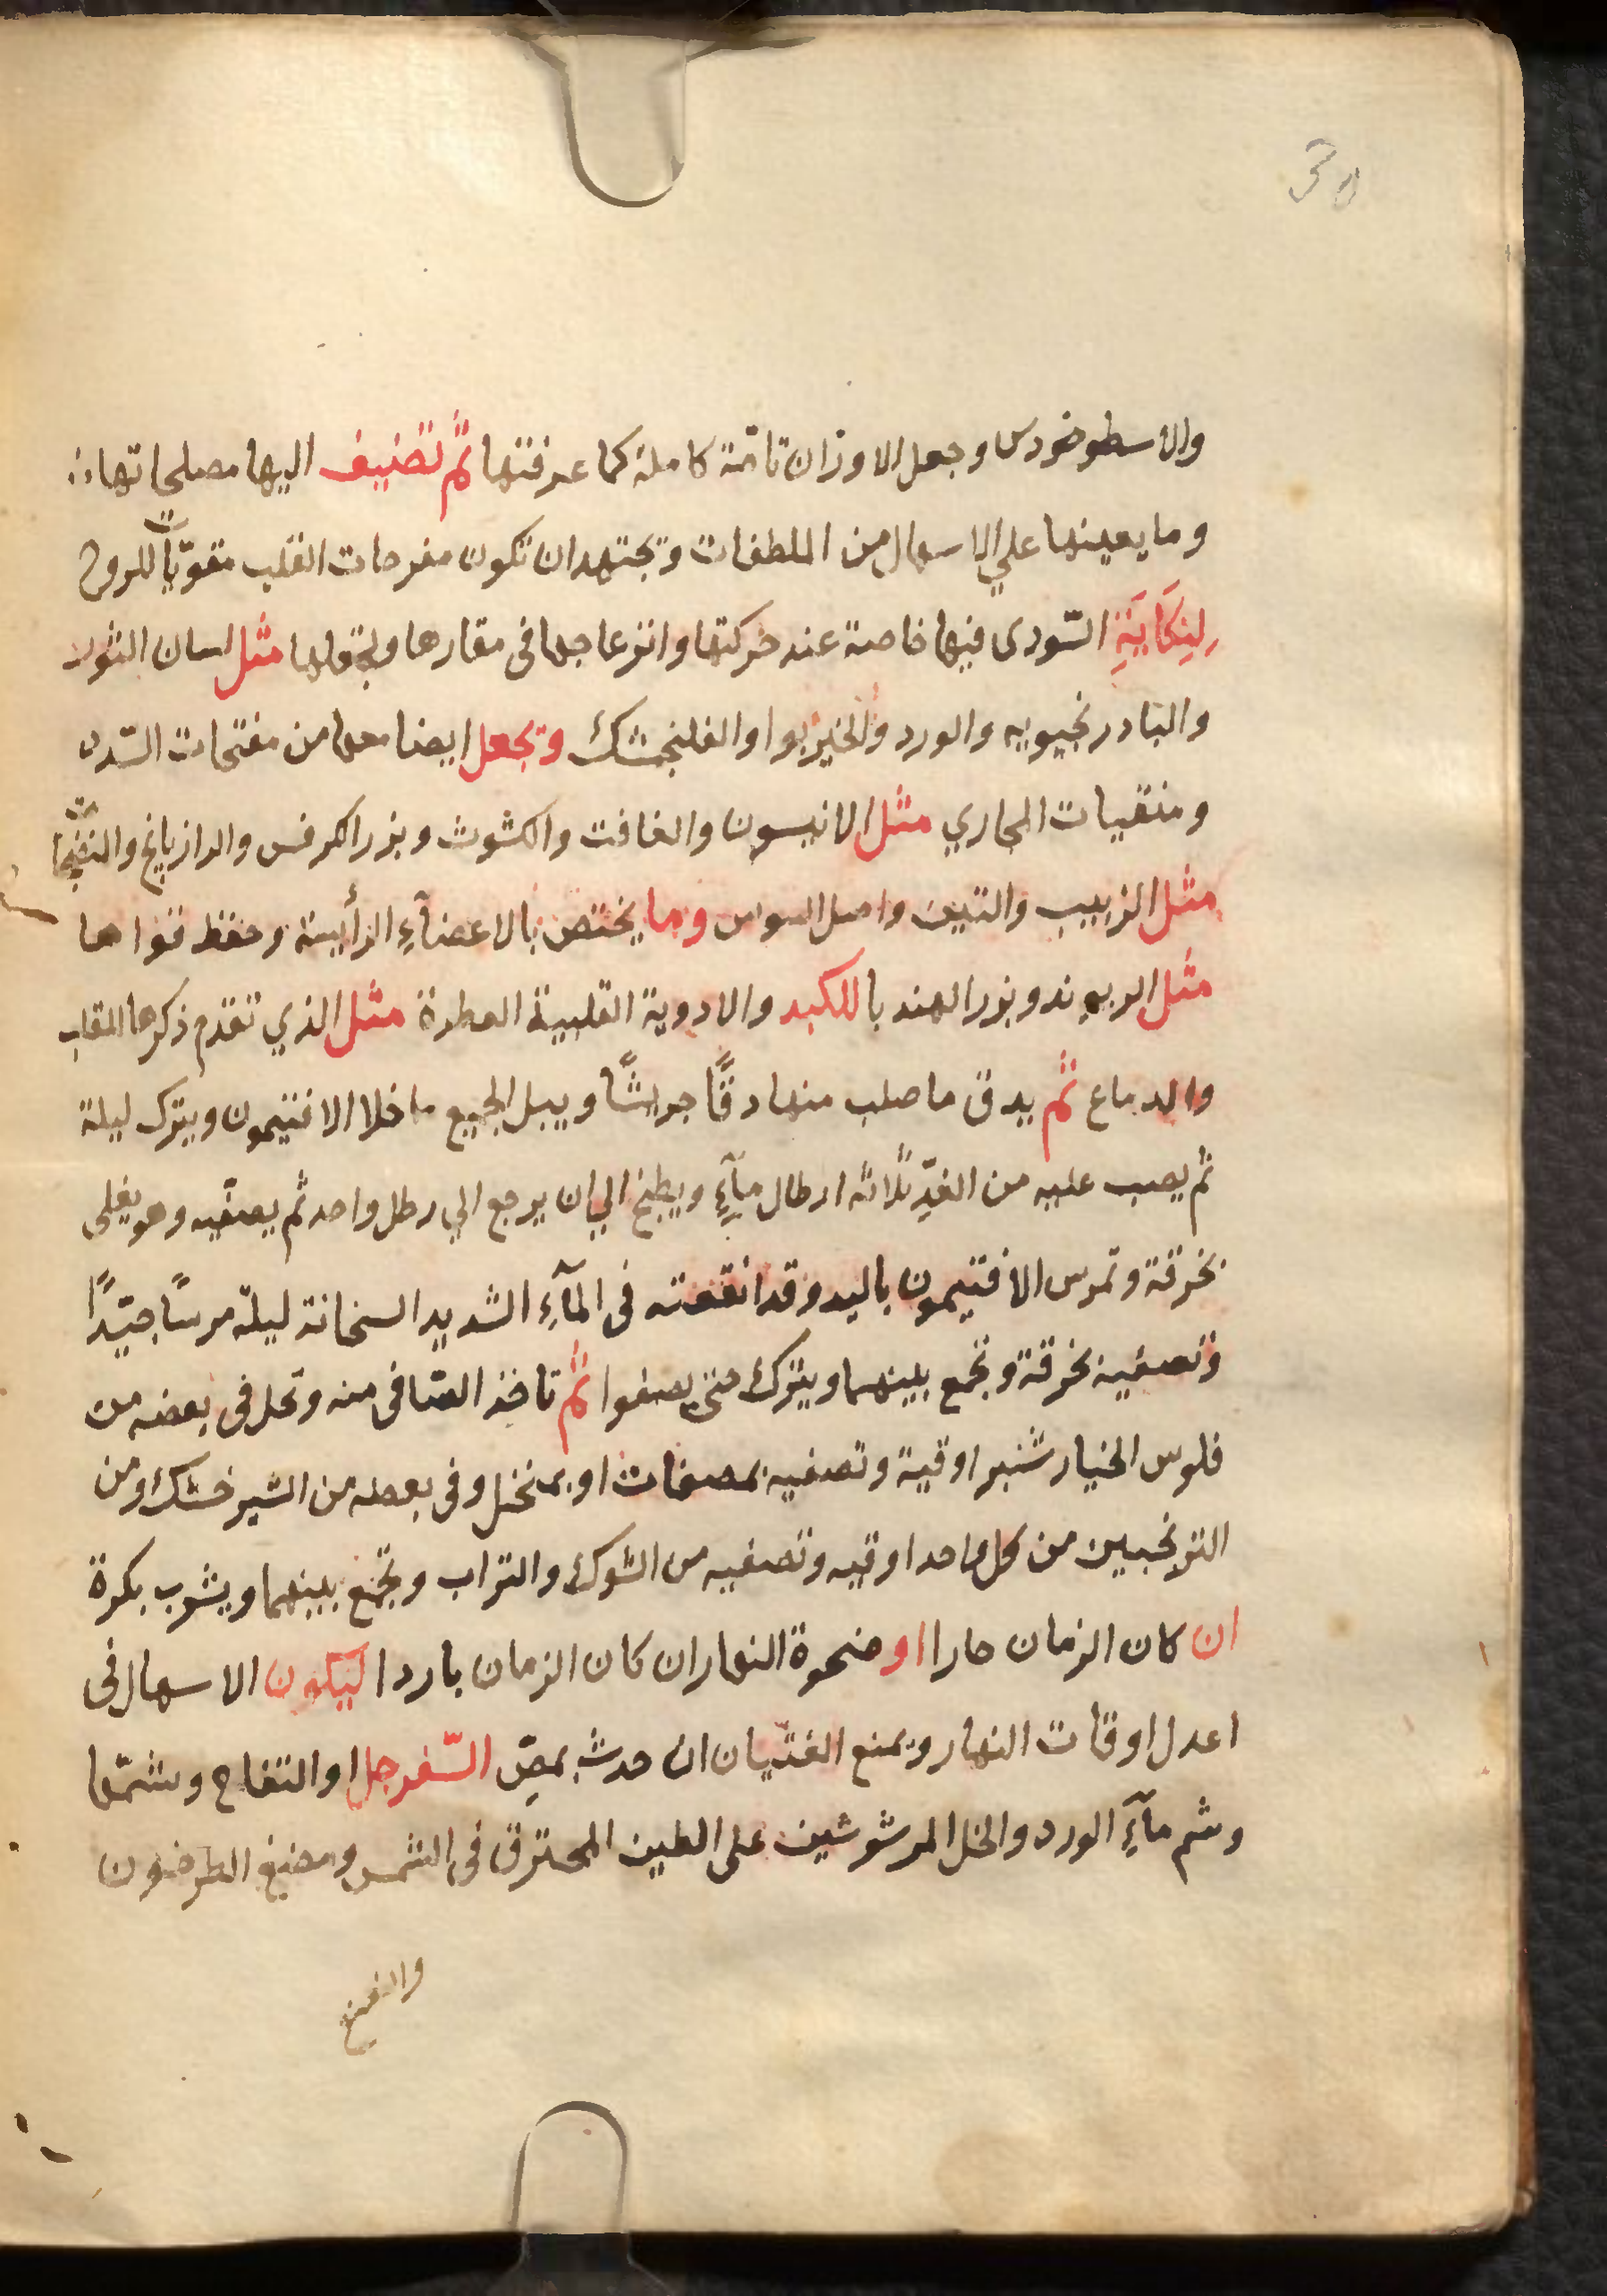 30
والاسطوخودس وجعل الاوزان تامّة كاملة كما عرفتها ثم تضيف اليها مصلحاتها
وما يعينها علي الاسهال من الملطفات وتجتهد ان تكون مفرحات القلب مقويّات للروح
لِنِكَايَةِ السّودى فيها خاصة عند حركتها وانزعاجها فى مقارها ولثقلها مثل لسان الثور
والبادرنجبويه والورد والخيربوا والفلنجمشك وتجعل ايضا معها من مفتحات السّدد
ومنقيات المجاري مثل الانيسون والغافت والكشوث وبزر الكرفس والرازيانج والمنضجات
مثل الزبيب والتين واصل السوس وما يختص بالاعضآءِ الرأيسة وحفظ قواها
مثل الريوند وبزر الهندبا للكبد والادوية القلبية العطرة مثل الذي تقدم ذكرها للقلب
والدماع ثم يدق ما صلب منها دقًّا جريشًا ويبل الجميع ما خلا الافتيمون ويترك ليلة
ثم يصب عليه من الغدِّ ثلاثه ارطال مآءٍ ويطبخ الي ان يرجع الي رطل واحد ثم يصفّيه وهو يغلى
بخرقة وتمرس الافتيمون باليد وقد انقعته فى المآءِ الشديد السخانة ليلة مرسًا جيّدًا
وتصفيه بخرقة وتجمع بينهما ويترك حتي يصفوا ثم تاخذ الصّافى منه وتحل فى بعضه من
فلوس الخيار شنبر اوقية وتصفيه بمصفات او بمنخل وفى بعضه من الشير خشك ومن
الترنجبين من كل واحد اوقيه وتصفيه من الشوك والتراب وتجمع بينهما ويشرب بكرة
ان كان الزمان حارا او ضحوة النهار ان كان الزمان باردا ليكون الاسهال فى
اعدل اوقات النهار ويمنع الغثيان ان حدث بمصّ السّفرجل او التفاح وشمّها
وشم مآءِ الورد والخل المرشوشين على الطين المحترق فى الشمس ومضغ الطرخون